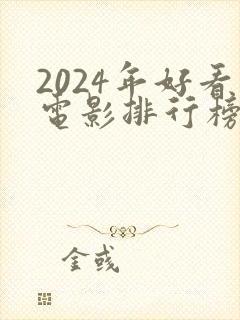 2024年好看
电影排行榜
金彧